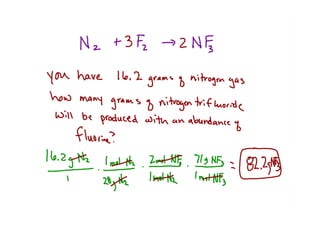 N₂ + 3F₂ → 2 NF₃
you have 16.2 grams of nitrogen gas
how many grams of nitrogen trifluoride
will be produced with an abundance of
fluorine?
16.2 g N₂ / 1 · 1 mol N₂ / 28 g N₂ · 2 mol NF₃ / 1 mol N₂ · 71 g NF₃ / 1 mol NF₃ = 82.2 g NF₃